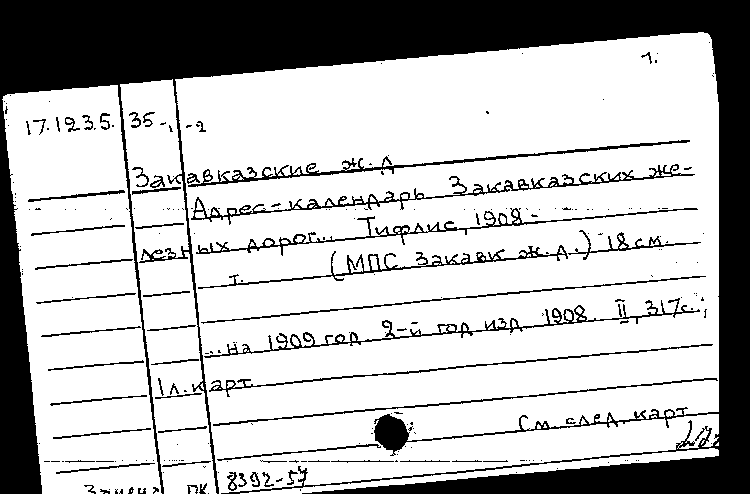 1.
17.12.3.5. 35-1,-2
Закавказские ж.д
Адрес-календарь Закавказских же-
лезных дорог... Тифлис, 1908 -
т. (МПС Закавк ж.д.) 18 см.
...на 1909 год. 2-й год изд 1908. II, 317с.;
1л. карт
См. след. карт
ПК 8392-57